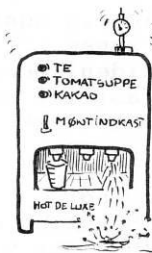 TE
TOMATSUPPE
KAKAO
MØNTINDKAST
HOT DE LUXE